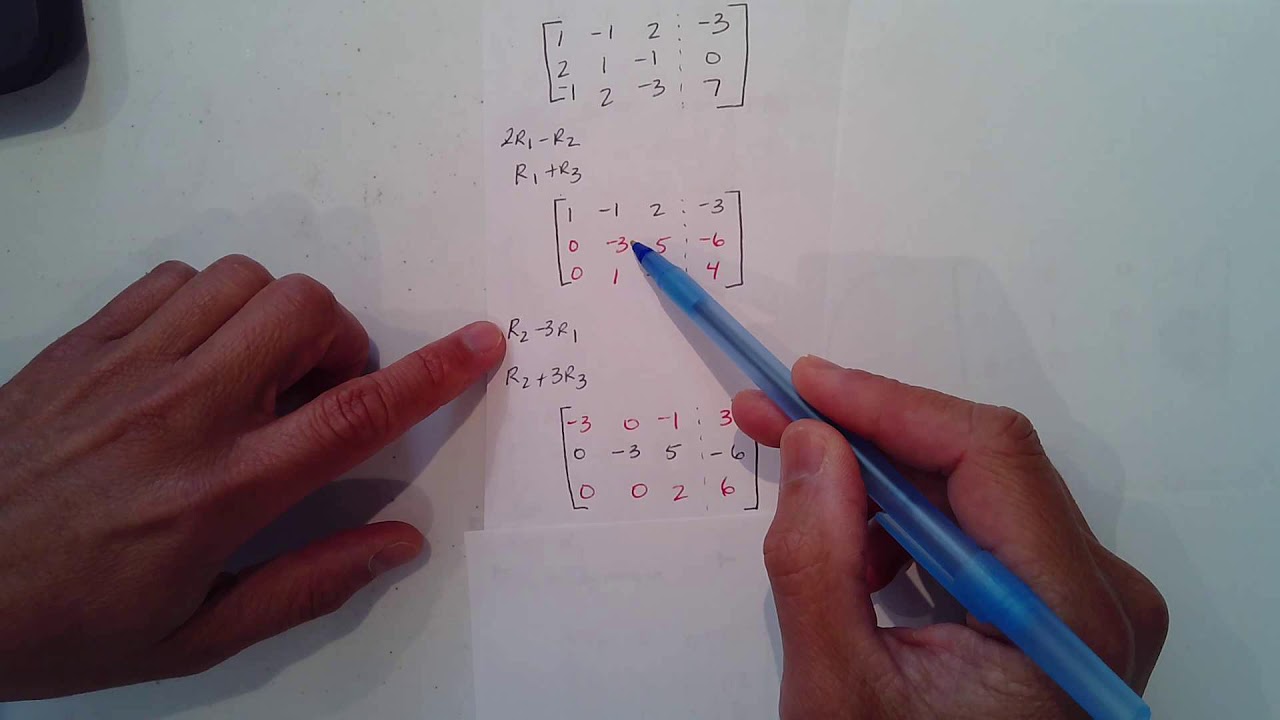 1 -1 2 -3
2 1 -1 0
-1 2 -3 7
2R₁ - R₂
R₁ + R₃
1 -1 2 -3
0 -3 5 -6
0 1 4
R₂ - 3R₁
R₂ + 3R₃
-3 0 -1 3
0 -3 5 -6
0 0 2 6